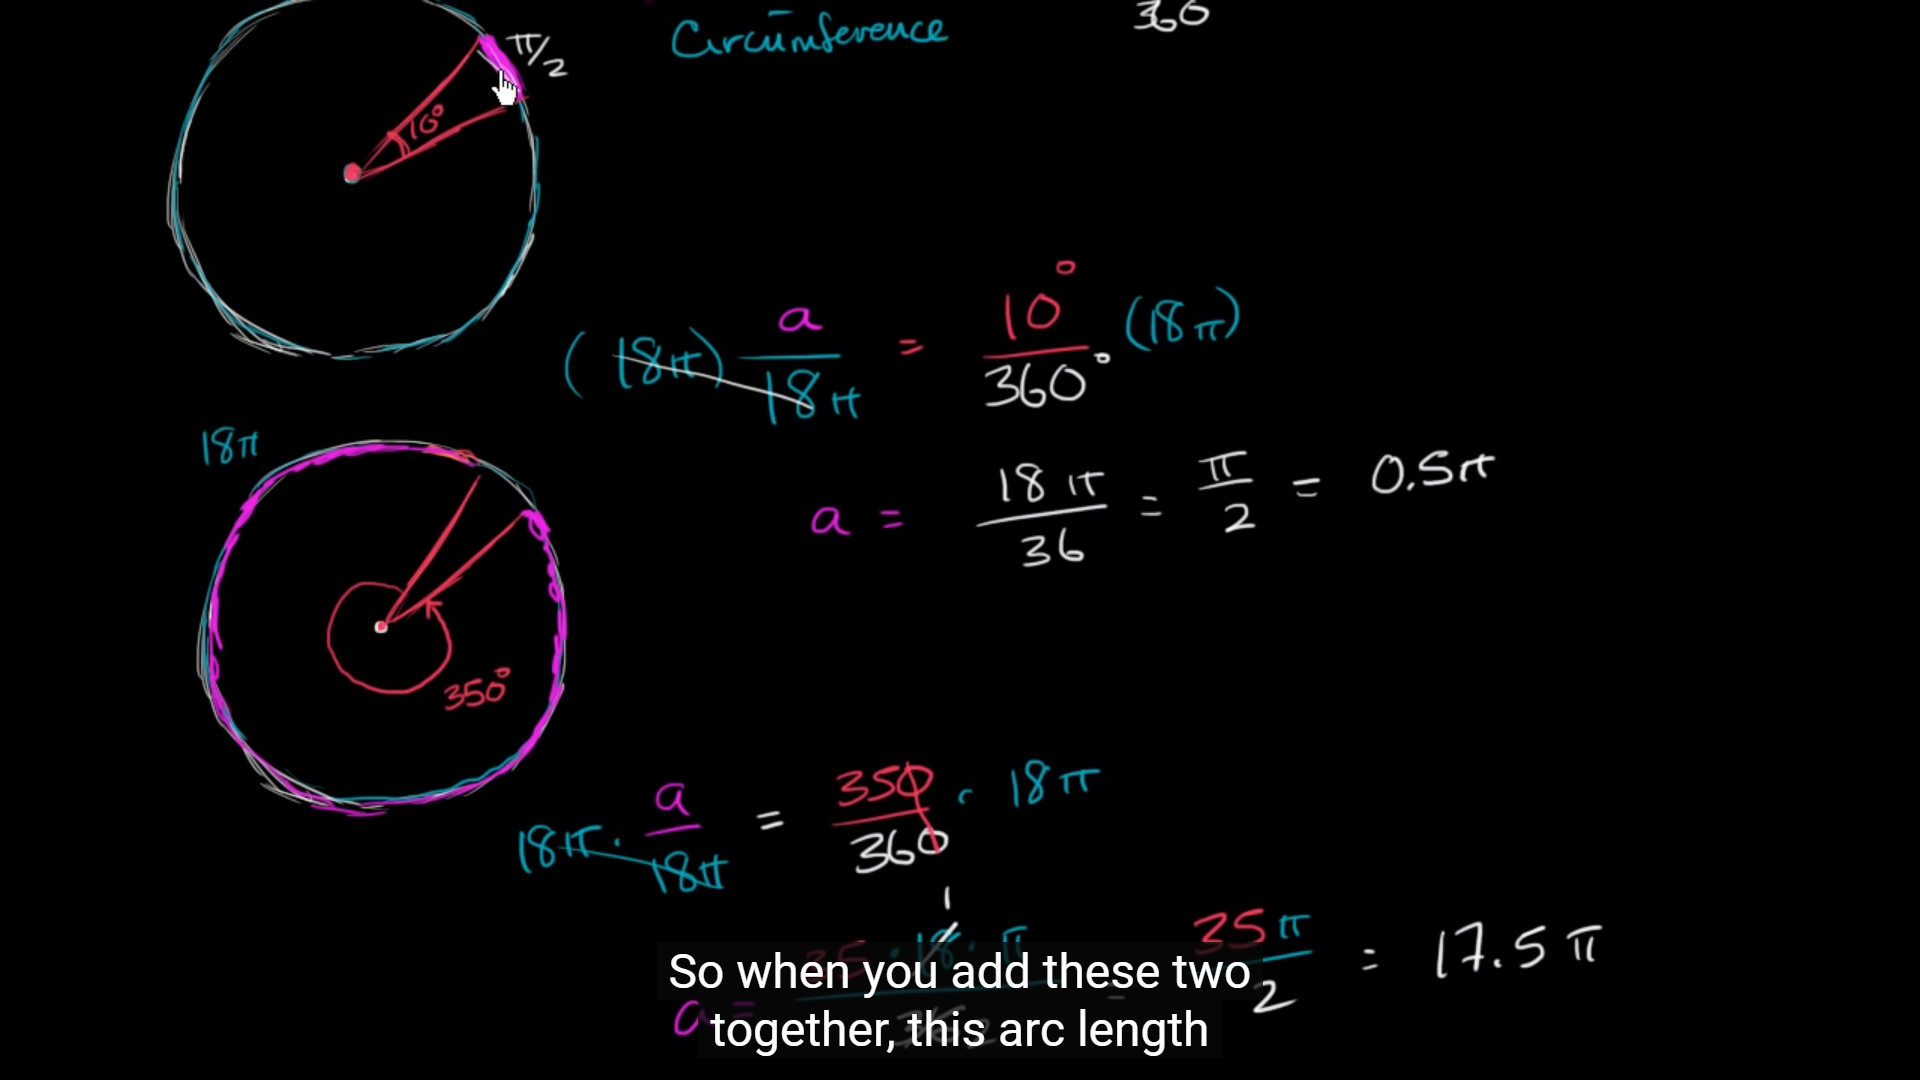 Circumference
360
π/2
10°
(18π) a/18π = 10°/360° (18π)
18π
a = 18π/36 = π/2 = 0.5π
350°
18π · a/18π = 350/360 · 18π
1
a = 35 · 18 · π = 35π/2 = 17.5π
So when you add these two
together, this arc length